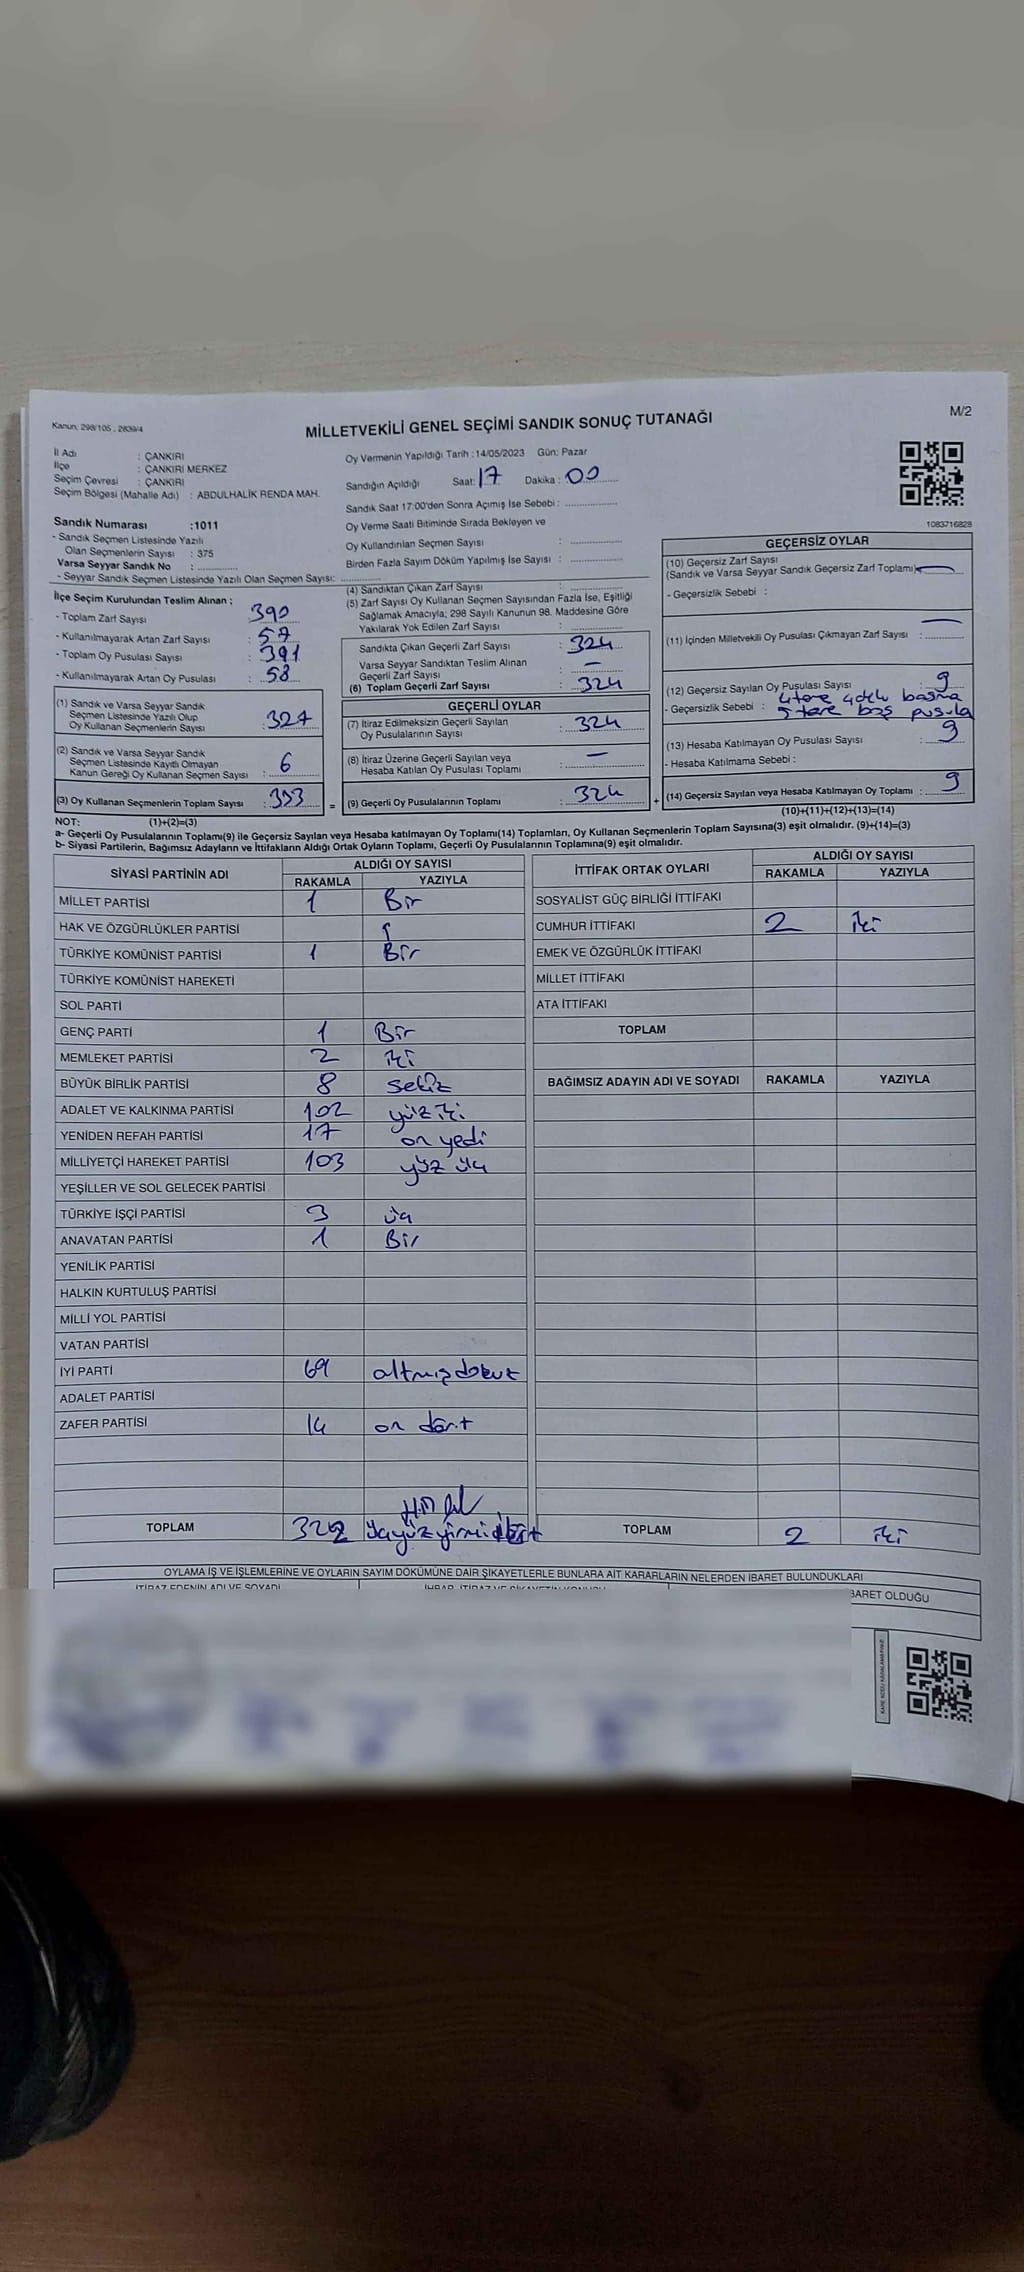 Kanun: 298/105 ; 2839/4
M/2
MİLLETVEKİLİ GENEL SEÇİMİ SANDIK SONUÇ TUTANAĞI
İl Adı : ÇANKIRI
İlçe : ÇANKIRI MERKEZ
Seçim Çevresi : ÇANKIRI
Seçim Bölgesi (Mahalle Adı) : ABDULHALİK RENDA MAH.
Sandık Numarası :1011
- Sandık Seçmen Listesinde Yazılı
Olan Seçmenlerin Sayısı : 375
Varsa Seyyar Sandık No :
- Seyyar Sandık Seçmen Listesinde Yazılı Olan Seçmen Sayısı:
Oy Vermenin Yapıldığı Tarih : 14/05/2023 Gün: Pazar
Sandığın Açıldığı Saat: 17 Dakika : 00
Sandık Saat 17:00'den Sonra Açılmış İse Sebebi :
Oy Verme Saati Bitiminde Sırada Bekleyen ve
Oy Kullandırılan Seçmen Sayısı :
Birden Fazla Sayım Döküm Yapılmış İse Sayısı :
1083716828
İlçe Seçim Kurulundan Teslim Alınan ;
- Toplam Zarf Sayısı : 390
- Kullanılmayarak Artan Zarf Sayısı : 57
- Toplam Oy Pusulası Sayısı : 391
- Kullanılmayarak Artan Oy Pusulası : 58
(1) Sandık ve Varsa Seyyar Sandık
Seçmen Listesinde Yazılı Olup
Oy Kullanan Seçmenlerin Sayısı : 327
(2) Sandık ve Varsa Seyyar Sandık
Seçmen Listesinde Kayıtlı Olmayan
Kanun Gereği Oy Kullanan Seçmen Sayısı : 6
(3) Oy Kullanan Seçmenlerin Toplam Sayısı : 333
(4) Sandıktan Çıkan Zarf Sayısı :
(5) Zarf Sayısı Oy Kullanan Seçmen Sayısından Fazla İse, Eşitliği
Sağlamak Amacıyla; 298 Sayılı Kanunun 98. Maddesine Göre
Yakılarak Yok Edilen Zarf Sayısı :
Sandıkta Çıkan Geçerli Zarf Sayısı : 324
Varsa Seyyar Sandıktan Teslim Alınan
Geçerli Zarf Sayısı : —
(6) Toplam Geçerli Zarf Sayısı : 324
GEÇERLİ OYLAR
(7) İtiraz Edilmeksizin Geçerli Sayılan
Oy Pusulalarının Sayısı : 324
(8) İtiraz Üzerine Geçerli Sayılan veya
Hesaba Katılan Oy Pusulası Toplamı : —
= (9) Geçerli Oy Pusulalarının Toplamı : 324
GEÇERSİZ OYLAR
(10) Geçersiz Zarf Sayısı
(Sandık ve Varsa Seyyar Sandık Geçersiz Zarf Toplamı) —
- Geçersizlik Sebebi :
(11) İçinden Milletvekili Oy Pusulası Çıkmayan Zarf Sayısı : —
(12) Geçersiz Sayılan Oy Pusulası Sayısı : 9
- Geçersizlik Sebebi : 4 tane
boş pusula
(13) Hesaba Katılmayan Oy Pusulası Sayısı : 9
- Hesaba Katılmama Sebebi :
+ (14) Geçersiz Sayılan veya Hesaba Katılmayan Oy Toplamı : 9
NOT: (1)+(2)=(3)
(10)+(11)+(12)+(13)=(14)
a- Geçerli Oy Pusulalarının Toplamı(9) ile Geçersiz Sayılan veya Hesaba katılmayan Oy Toplamı(14) Toplamları, Oy Kullanan Seçmenlerin Toplam Sayısına(3) eşit olmalıdır. (9)+(14)=(3)
b- Siyasi Partilerin, Bağımsız Adayların ve İttifakların Aldığı Ortak Oyların Toplamı, Geçerli Oy Pusulalarının Toplamına(9) eşit olmalıdır.
SİYASİ PARTİNİN ADI ALDIĞI OY SAYISI
RAKAMLA YAZIYLA
MİLLET PARTİSİ 1 Bir
HAK VE ÖZGÜRLÜKLER PARTİSİ
TÜRKİYE KOMÜNİST PARTİSİ 1 Bir
TÜRKİYE KOMÜNİST HAREKETİ
SOL PARTİ
GENÇ PARTİ 1 Bir
MEMLEKET PARTİSİ 2 iki
BÜYÜK BİRLİK PARTİSİ 8 sekiz
ADALET VE KALKINMA PARTİSİ 102 yüz iki
YENİDEN REFAH PARTİSİ 17 on yedi
MİLLİYETÇİ HAREKET PARTİSİ 103 yüz üç
YEŞİLLER VE SOL GELECEK PARTİSİ
TÜRKİYE İŞÇİ PARTİSİ 3 üç
ANAVATAN PARTİSİ 1 Bir
YENİLİK PARTİSİ
HALKIN KURTULUŞ PARTİSİ
MİLLİ YOL PARTİSİ
VATAN PARTİSİ
İYİ PARTİ 69 altmışdokuz
ADALET PARTİSİ
ZAFER PARTİSİ 14 on dört
TOPLAM 322
İTTİFAK ORTAK OYLARI ALDIĞI OY SAYISI
RAKAMLA YAZIYLA
SOSYALİST GÜÇ BİRLİĞİ İTTİFAKI
CUMHUR İTTİFAKI 2 iki
EMEK VE ÖZGÜRLÜK İTTİFAKI
MİLLET İTTİFAKI
ATA İTTİFAKI
TOPLAM
BAĞIMSIZ ADAYIN ADI VE SOYADI RAKAMLA YAZIYLA
TOPLAM 2 iki
OYLAMA İŞ VE İŞLEMLERİNE VE OYLARIN SAYIM DÖKÜMÜNE DAİR ŞİKAYETLERLE BUNLARA AİT KARARLARIN NELERDEN İBARET BULUNDUKLARI
İTİRAZ EDENİN ADI VE SOYADI
BARET OLDUĞU